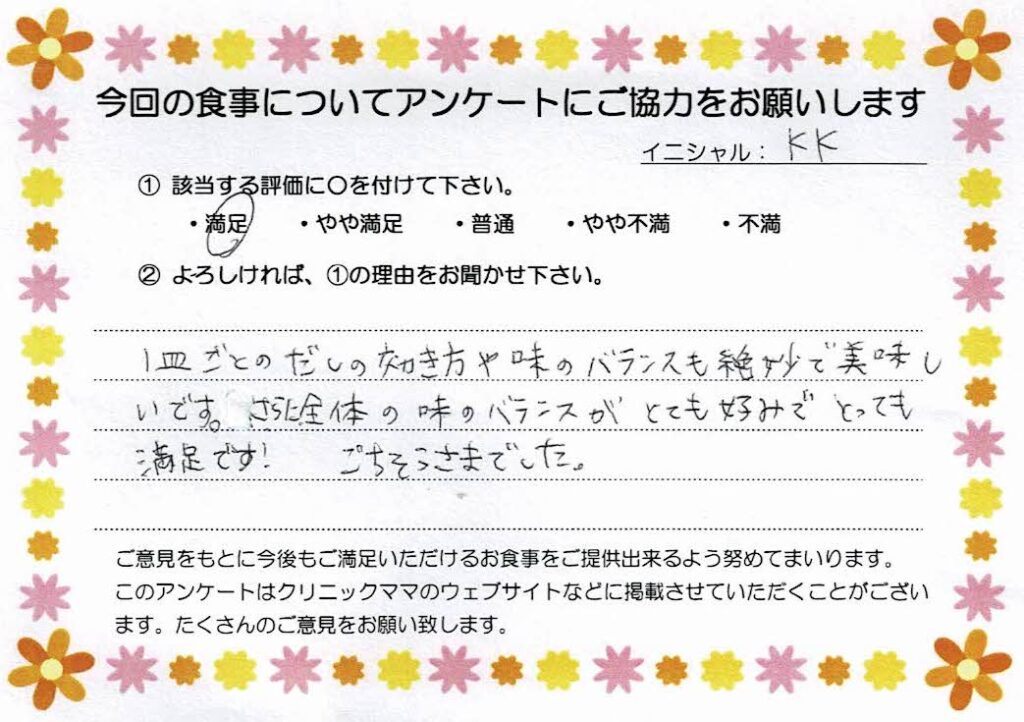 今回の食事についてアンケートにご協力をお願いします
イニシャル： KK
① 該当する評価に〇を付けて下さい。
・満足 ・やや満足 ・普通 ・やや不満 ・不満
② よろしければ、①の理由をお聞かせ下さい。
1皿ごとのだしの効き方や味のバランスも絶妙で美味し
いです。さらに全体の味のバランスがとても好みでとっても
満足です! ごちそうさまでした。
ご意見をもとに今後もご満足いただけるお食事をご提供出来るよう努めてまいります。
このアンケートはクリニックママのウェブサイトなどに掲載させていただくことがござい
ます。たくさんのご意見をお願い致します。